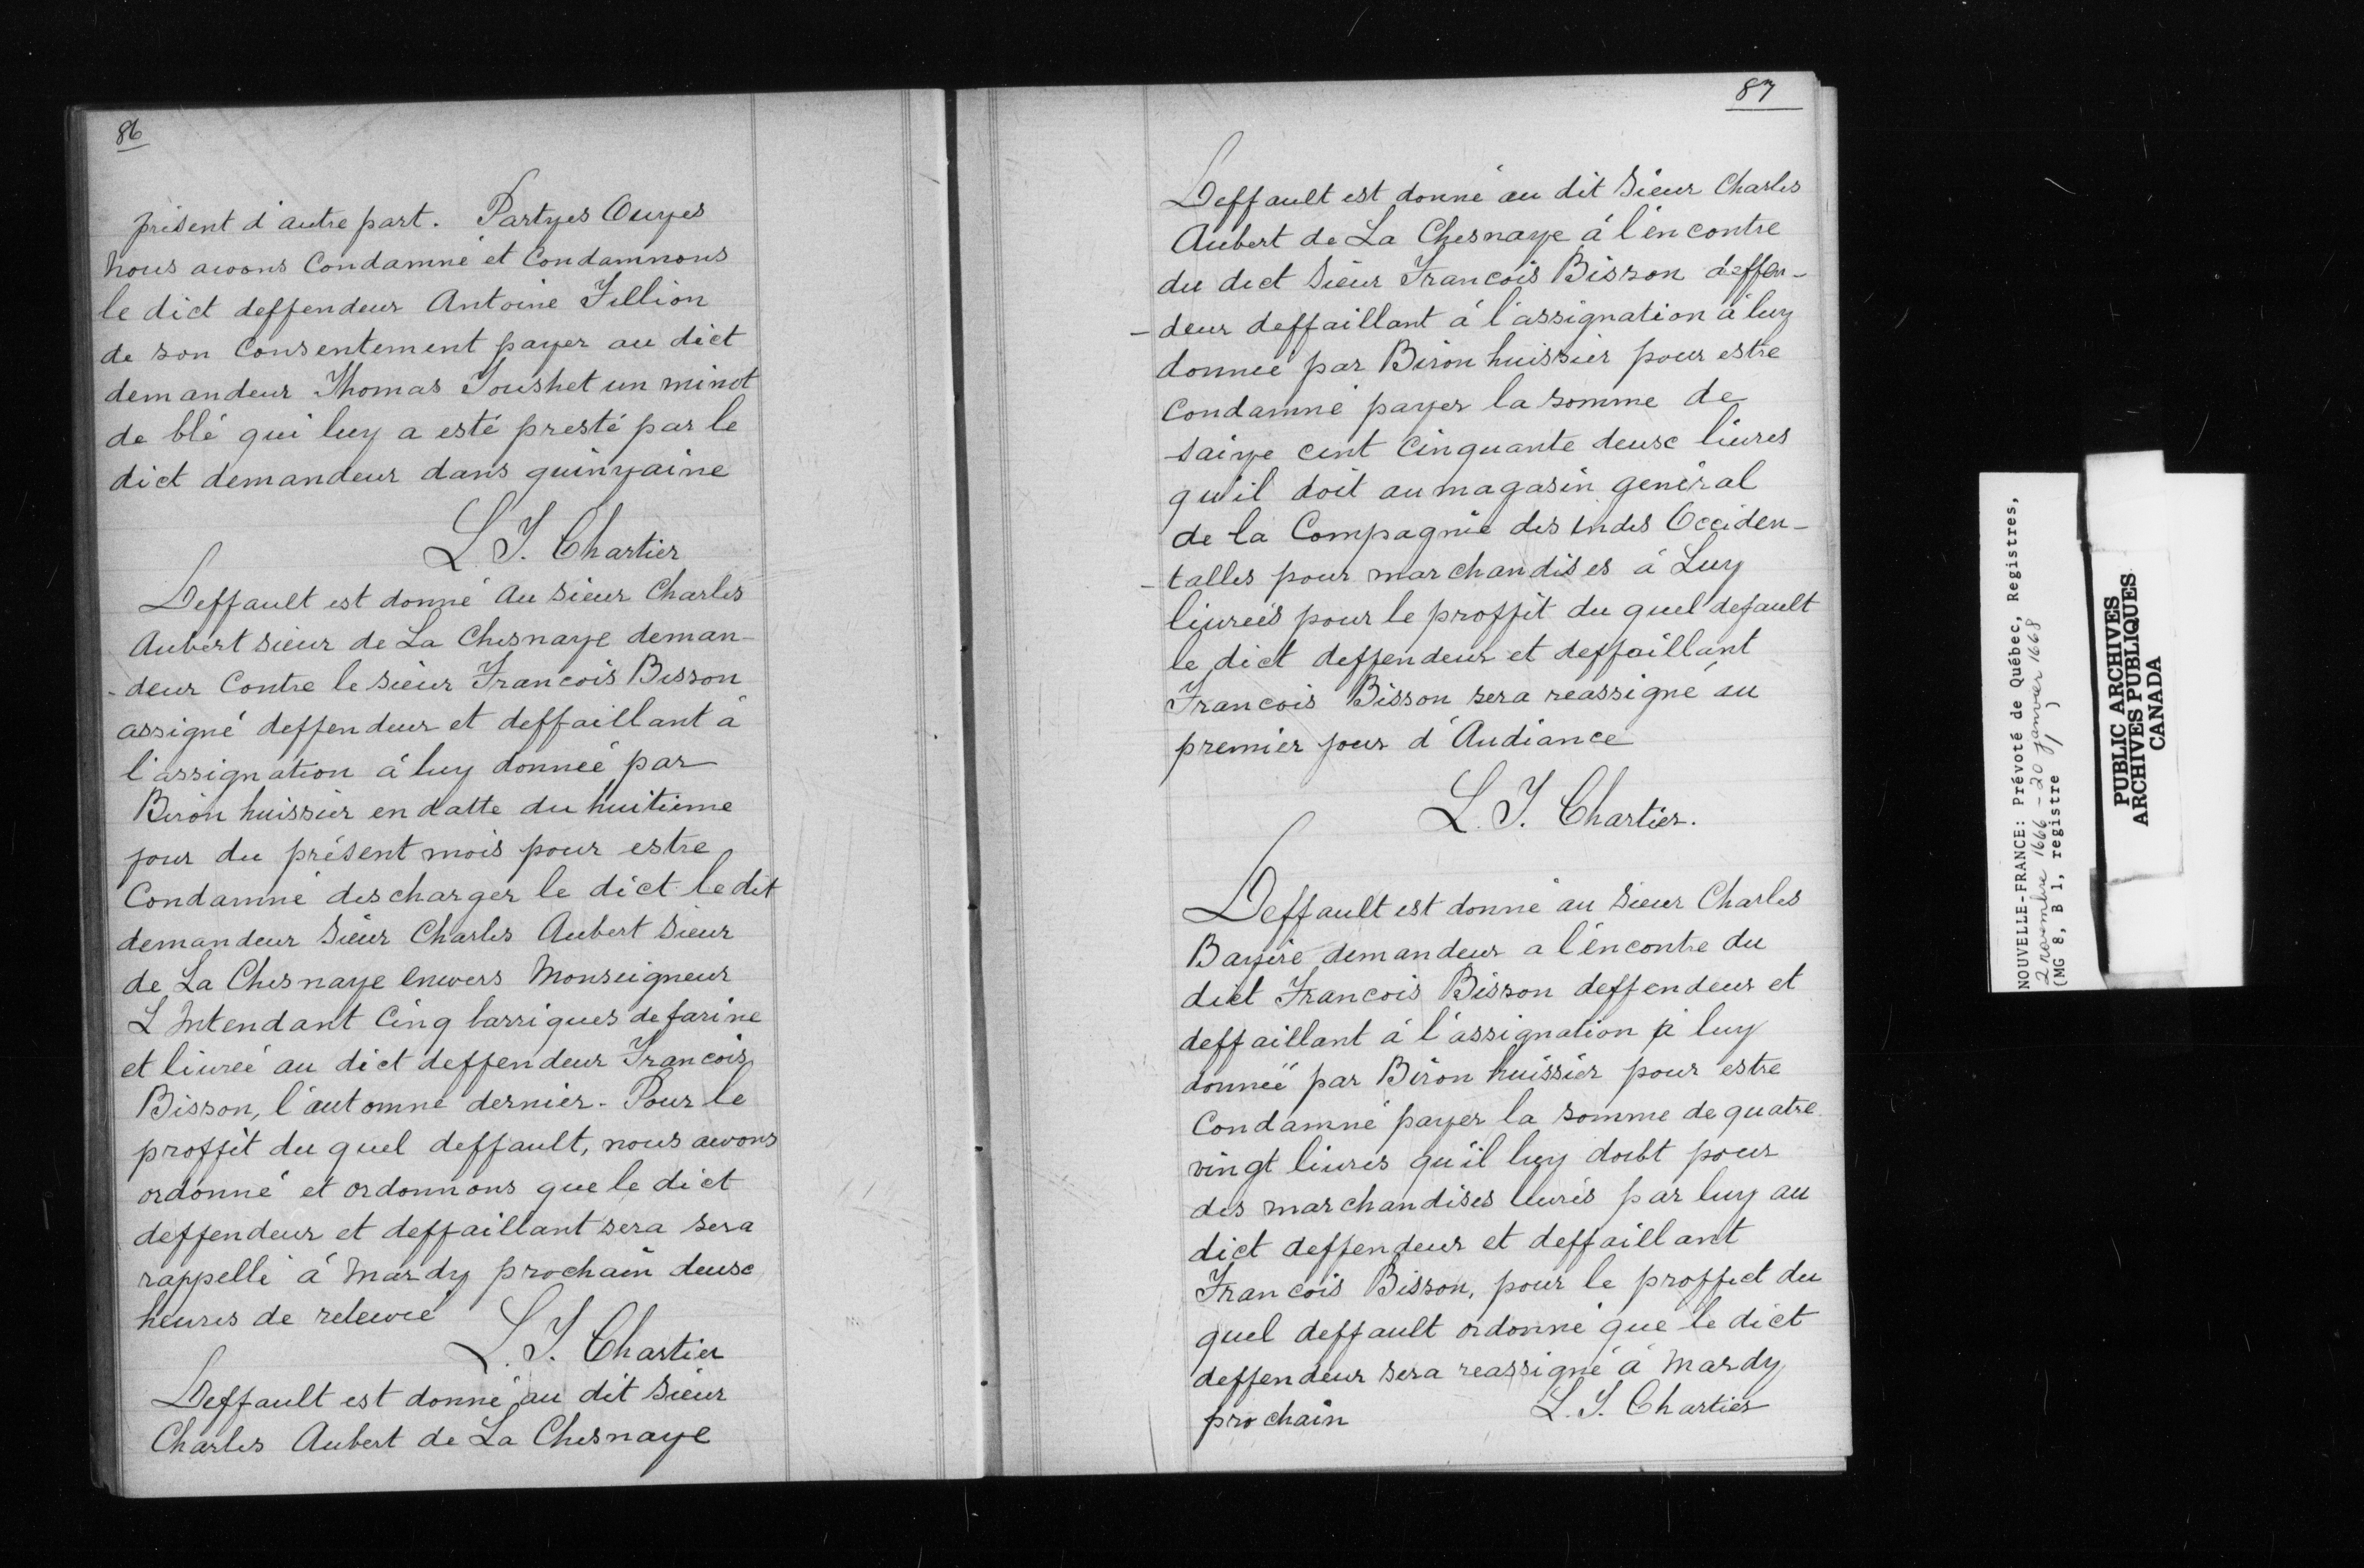 86
présent d'autre part. Partyes Ouyes
Nous avons Condamné et Condamnons
le dict deffendeur Antoine Fillion
de son Consentement payer au dict
demandeur Thomas Toushet un minot
de blé qui luy a esté presté par le
dict demandeur dans quinzaine
L. T. Chartier
Deffault est donné au Sieur Charles
Aubert sieur de La Chesnaye deman-
-deur Contre le Sieur Francois Bisson
assigné deffendeur et deffaillant à
l'assignation à luy donnée par
Biron huissier en datte du huitieme
jour du présent mois pour estre
Condamné descharger le dict le dit
demandeur Sieur Charles Aubert Sieur
de La Chesnaye envers Monseigneur
L Intendant Cinq barriques de farine
et livreé au dict deffendeur Francois
Bisson, l'automne dernier. Pour le
proffit du quel deffault, nous avons
ordonné et ordonnons que le dict
deffendeur et deffaillant sera sera
rappellé à Mardy prochain deuse
heures de relevée
L. T. Chartier
Deffault est donné au dit Sieur
Charles Aubert de La Chesnaye
87
Deffault est donné au dit Sieur Charles
Aubert de La Chesnaye à l'encontre
du dict Sieur Francois Bisson deffen-
-deur deffaillant à l'assignation à luy
donneé par Biron huissier pour estre
Condamné payer la somme de
saize cent Cinquante deuse livres
qu'il doit au magasin general
de la Compagnie des Indes Occiden-
-talles pour marchandises à Luy
livreés pour le proffit du quel default
le dict deffendeur et deffaillant
Francois Bisson sera reassigné au
premier jour d'Audiance
L. T. Chartier.
Deffault est donné au Sieur Charles
Bazire demandeur a l'encontre du
dict Francois Bisson deffendeur et
deffaillant à l'assignation à luy
donneé par Biron huissier pour estre
Condamné payer la somme de quatre
vingt livres qu'il luy doibt pour
des marchandises livrés par luy au
dict deffendeur et deffaillant
Francois Bisson, pour le proffict du
quel deffault ordonné que le dict
deffendeur sera reassigné à Mardy
prochain L. T. Chartier
NOUVELLE-FRANCE: Prévoté de Québec, Registres,
2 novembre 1666 - 20 janvier 1668
(MG 8, B 1, registre 1)
PUBLIC ARCHIVES
ARCHIVES PUBLIQUES
CANADA